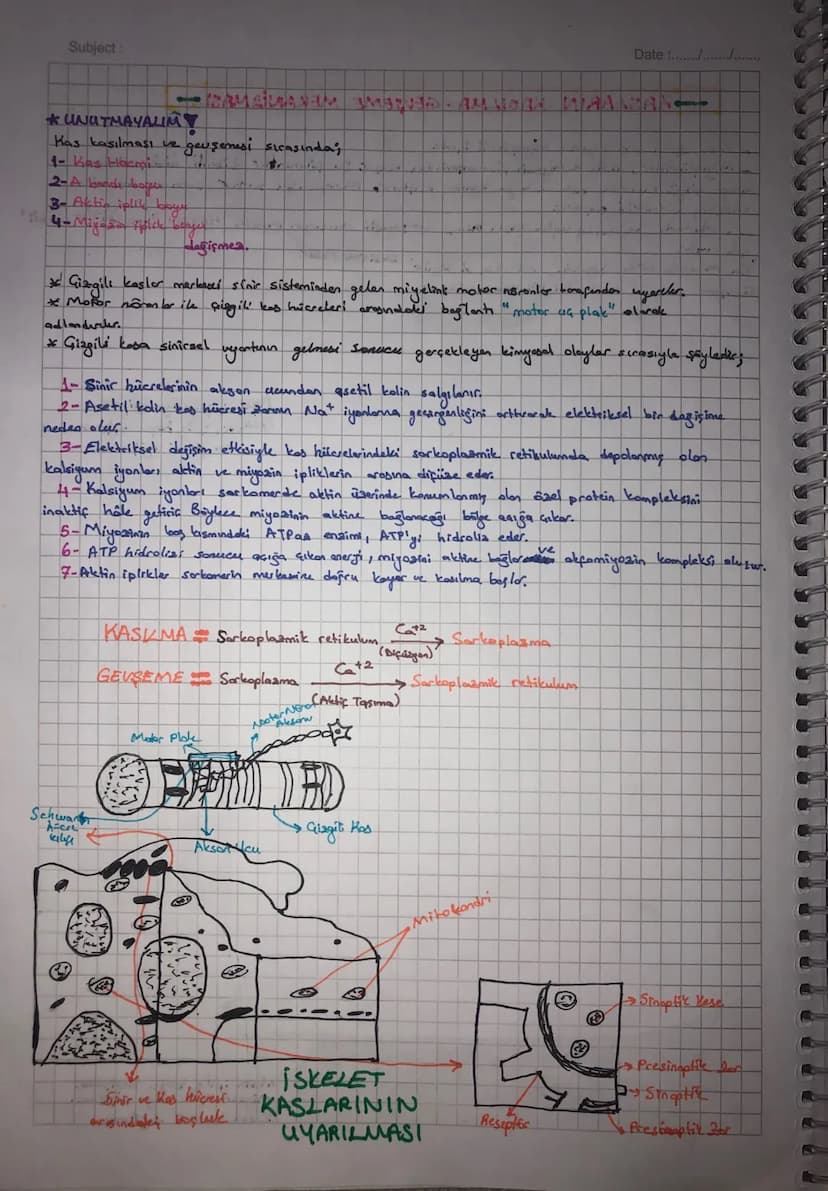 Subject :
Date :....../....../......
* UNUTMAYALIM!
Kas kasılması ve gevşemesi sırasında;
1- Kas Hacmi
2- A bandı boyu
3- Aktin iplik boyu
4- Miyozin iplik boyu
değişmez.
* Çizgili kaslar merkezi sinir sisteminden gelen miyelinli motor nöronlar tarafından uyarılır.
* Motor nöronlar ile çizgili kas hücreleri arasındaki bağlantı "motor uç plak" olarak
adlandırılır.
* Çizgili kasa sinirsel uyartının gelmesi sonucu gerçekleşen kimyasal olaylar sırasıyla şöyledir;
1- Sinir hücrelerinin akson ucundan asetil kolin salgılanır.
2- Asetil kolin kas hücresi zarının Na+ iyonlarına geçirgenliğini arttırarak elektriksel bir değişime
neden olur.
3- Elektriksel değişim etkisiyle kas hücrelerindeki sarkoplazmik retikulumda depolanmış olan
kalsiyum iyonları aktin ve miyozin ipliklerin arasına difüze eder.
4- Kalsiyum iyonları sarkomerde aktin üzerinde konumlanmış olan özel protein kompleksini
inaktif hâle getirir. Böylece miyozinin aktine bağlanacağı bölge açığa çıkar.
5- Miyozinin baş kısmındaki ATPaz enzimi, ATP'yi hidroliz eder.
6- ATP hidrolizi sonucu açığa çıkan enerji, miyozini aktine bağlar ve aktomiyozin kompleksi oluşur.
7- Aktin iplikler sarkomerin merkezine doğru kayar ve kasılma başlar.
KASILMA = Sarkoplazmik retikulum Ca+2 (Difüzyon) Sarkoplazma
GEVŞEME = Sarkoplazma Ca+2 (Aktif Taşıma) Sarkoplazmik retikulum
Motor Nöron
Aksonu
Motor Plak
Schwann
Hücre
kılıfı
Akson Ucu
Çizgili Kas
Mitokondri
Sinaptik Kese
Presinaptik Zar
Sinaptik
Presinaptik Zar
Reseptör
Sinir ve Kas hücresi
arasındaki boşluk
İSKELET
KASLARININ
UYARILMASI